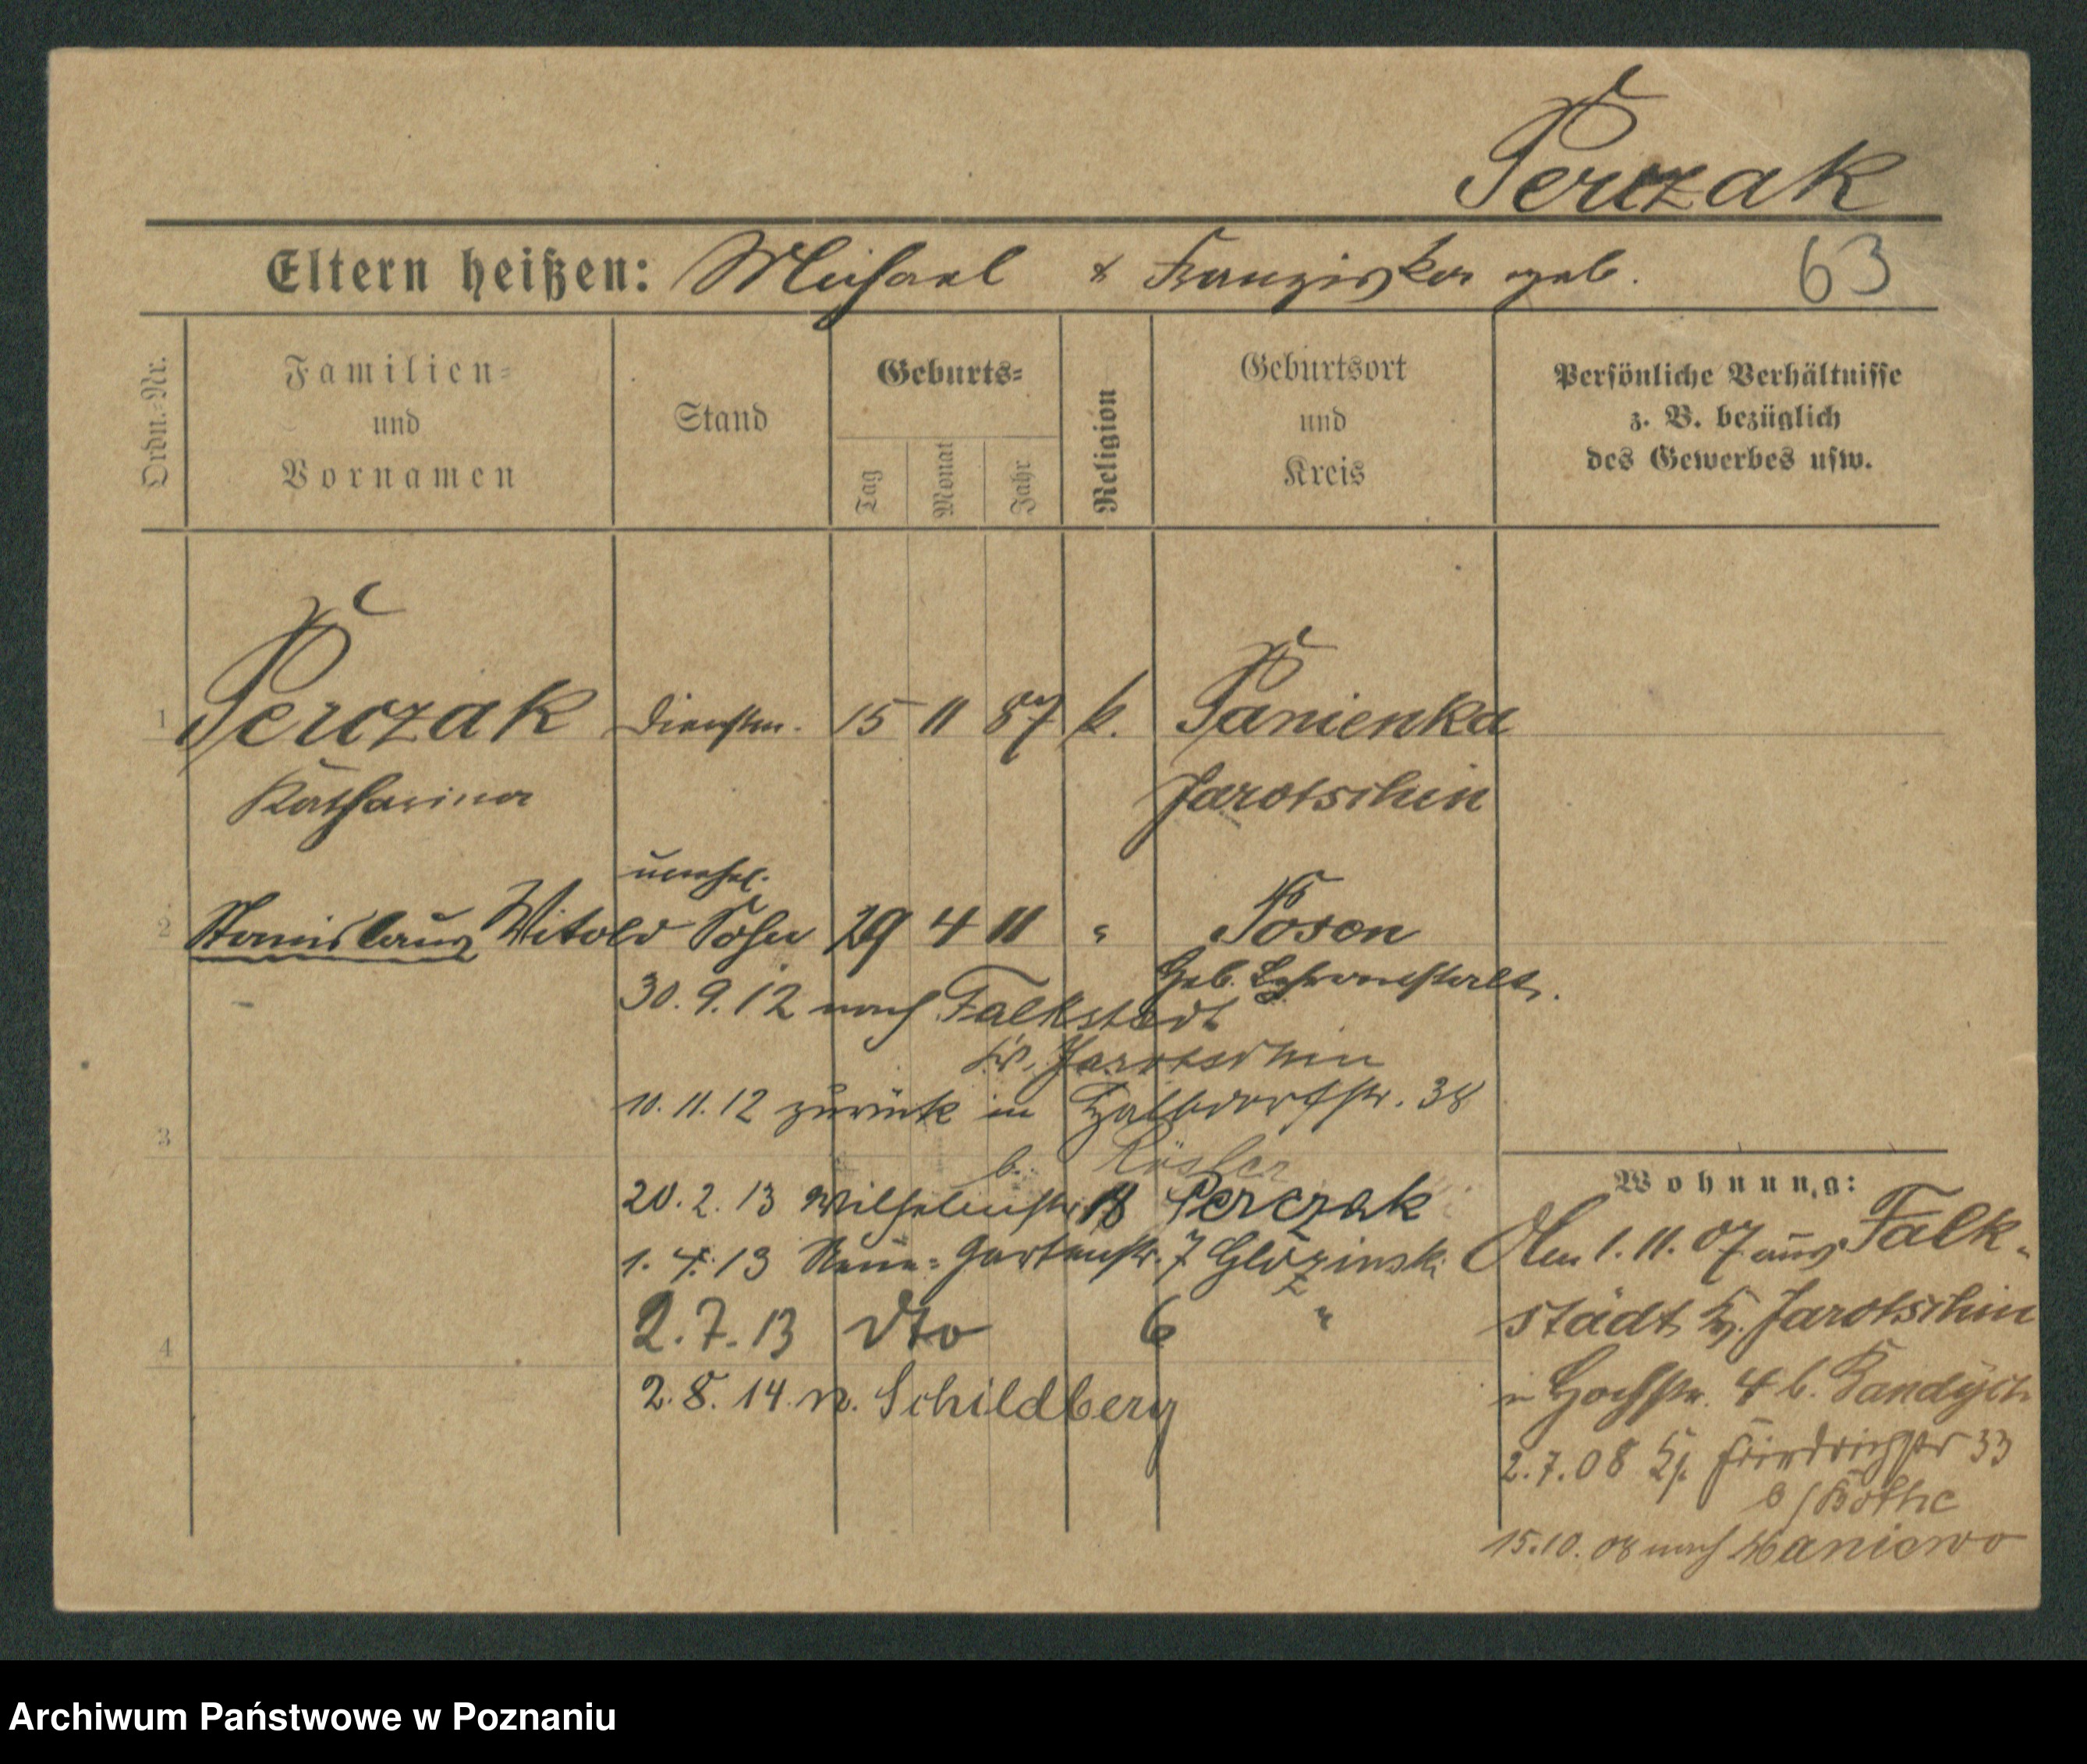 Perczak
Eltern heißen: Michael & Franziska geb. 63
Ordn.-Nr.
Familien-
und
Vornamen
Stand
Geburts-
Tag
Monat
Jahr
Religion
Geburtsort
und
Kreis
Persönliche Verhältnisse
z. B. bezüglich
des Gewerbes usw.
1 Perczak Dienstm. 15 11 87 k. Panienka
Katharina Jarotschin
unehel.
2 Stanislaus Witold Sohn 29 4 11 " Posen
Geb. Lehranstalt.
30.9.12 nach Falkstädt
Kr. Jarotschin
10.11.12 zurück in Halbdorfstr. 38
3
b. Rösler
20.2.13 Wilhelmstr. 18 Perczak
1.4.13 Neue-Gartenstr. 7 Glozinski
2.7.13 dto 6 "
4
2.8.14 n. Schildberg
Wohnung:
Am 1.11.07 aus Falk-
städt Kr. Jarotschin
in Hochstr. 4 b. Kandyck
2.7.08 Kg. Friedrichstr 33
b/Kothe
15.10.08 nach Waniewo
Archiwum Państwowe w Poznaniu